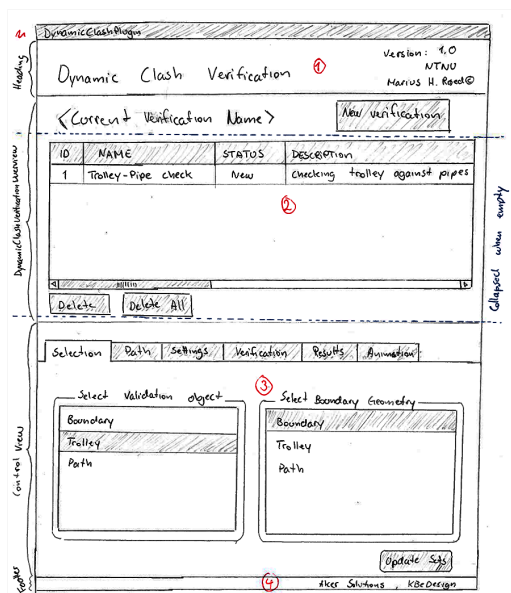 DynamicClashPlugin
Heading
Dynamic Clash Verification
1
Version: 1.0
NTNU
Marius H. Raed©
<Current Verification Name>
New verification
DynamicClashVerificationOverview
Collapsed when empty
ID NAME STATUS DESCRIPTION
1 Trolley-Pipe check New Checking trolley against pipes
2
Delete Delete All
Control View
Selection Path Settings Verification Results Animation
3
Select Validation object
Boundary
Trolley
Path
Select Boundary Geometry
Boundary
Trolley
Path
Update Sets
Footer
4
Aker Solutions, KBeDesign